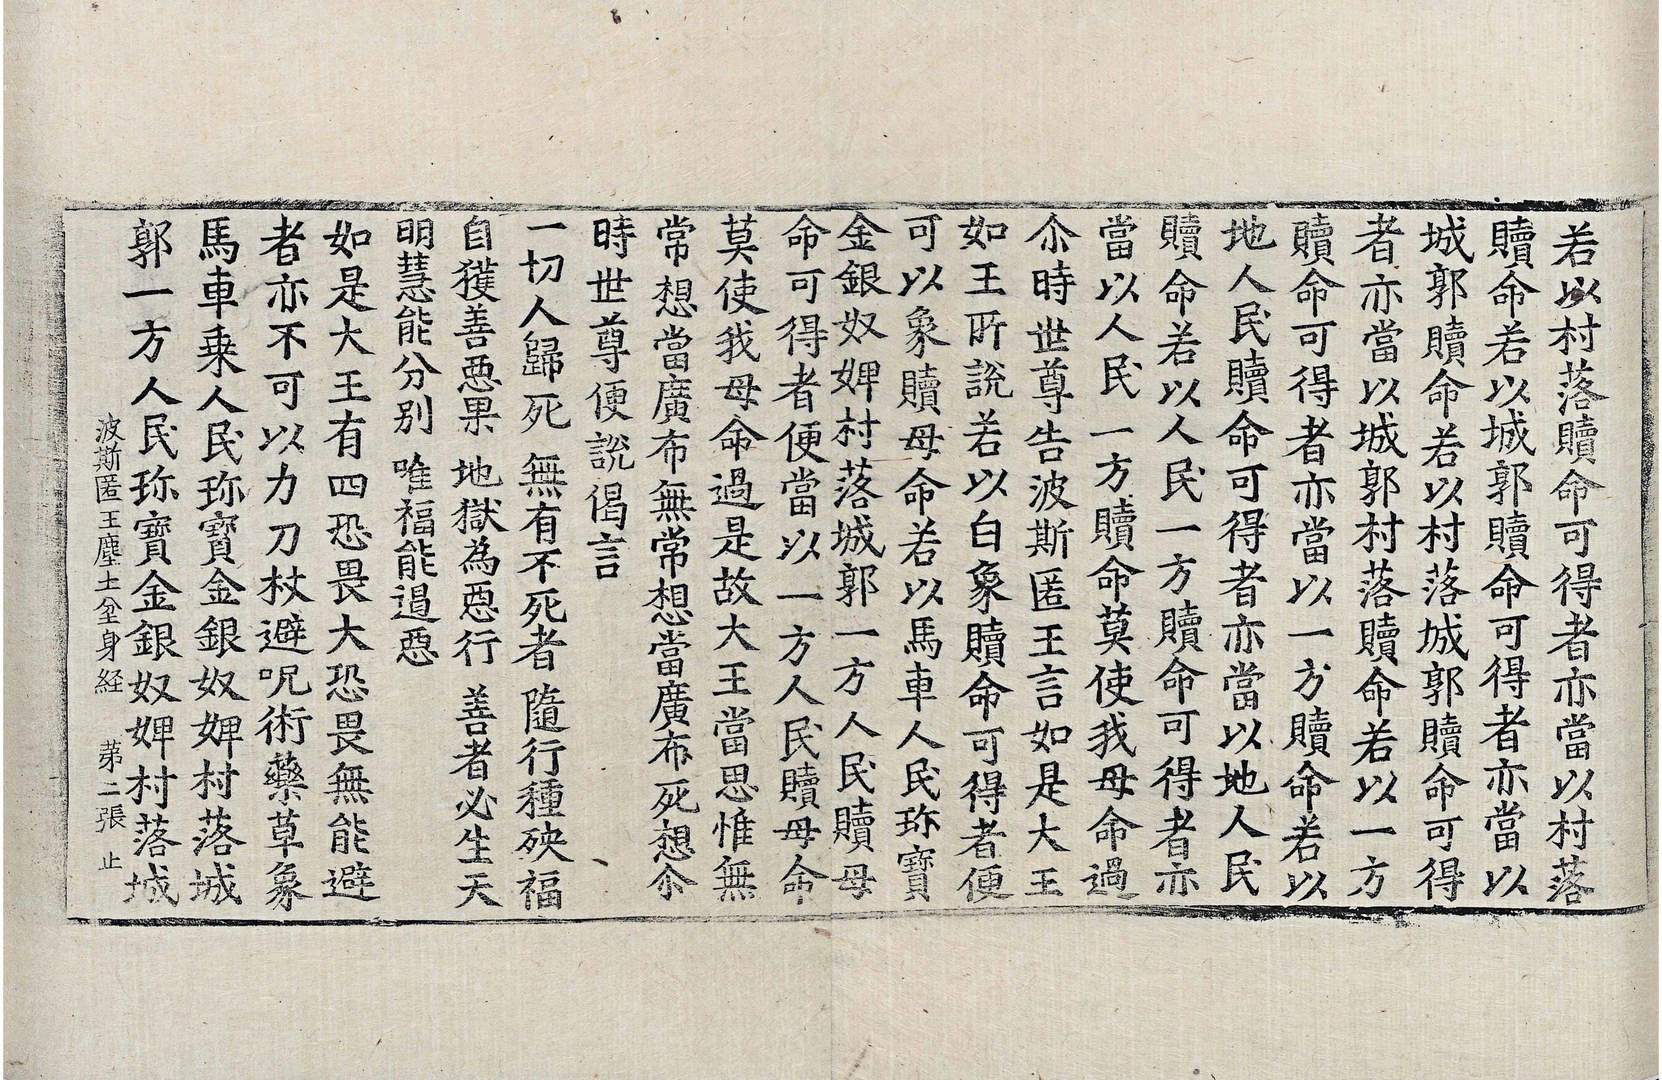 若以村落贖命可得者亦當以村落
贖命若以城郭贖命可得者亦當以
城郭贖命若以村落城郭贖命可得
者亦當以城郭村落贖命若以一方
贖命可得者亦當以一方贖命若以
地人民贖命可得者亦當以地人民
贖命若以人民一方贖命可得者亦
當以人民一方贖命莫使我母命過
尒時世尊告波斯匿王言如是大王
如王所說若以白象贖命可得者便
可以象贖母命若以馬車人民珎寶
金銀奴婢村落城郭一方人民贖母
命可得者便當以一方人民贖母命
莫使我母命過是故大王當思惟無
常想當廣布無常想當廣布死想尒
時世尊便說偈言
一切人歸死 無有不死者 隨行種殃福
自獲善惡果 地獄為惡行 善者必生天
明慧能分別 唯福能遏惡
如是大王有四恐畏大恐畏無能避
者亦不可以力刀杖避呪術藥草象
馬車乗人民珎寶金銀奴婢村落城
郭一方人民珎寶金銀奴婢村落城
波斯匿王塵土坌身経 苐二張 止